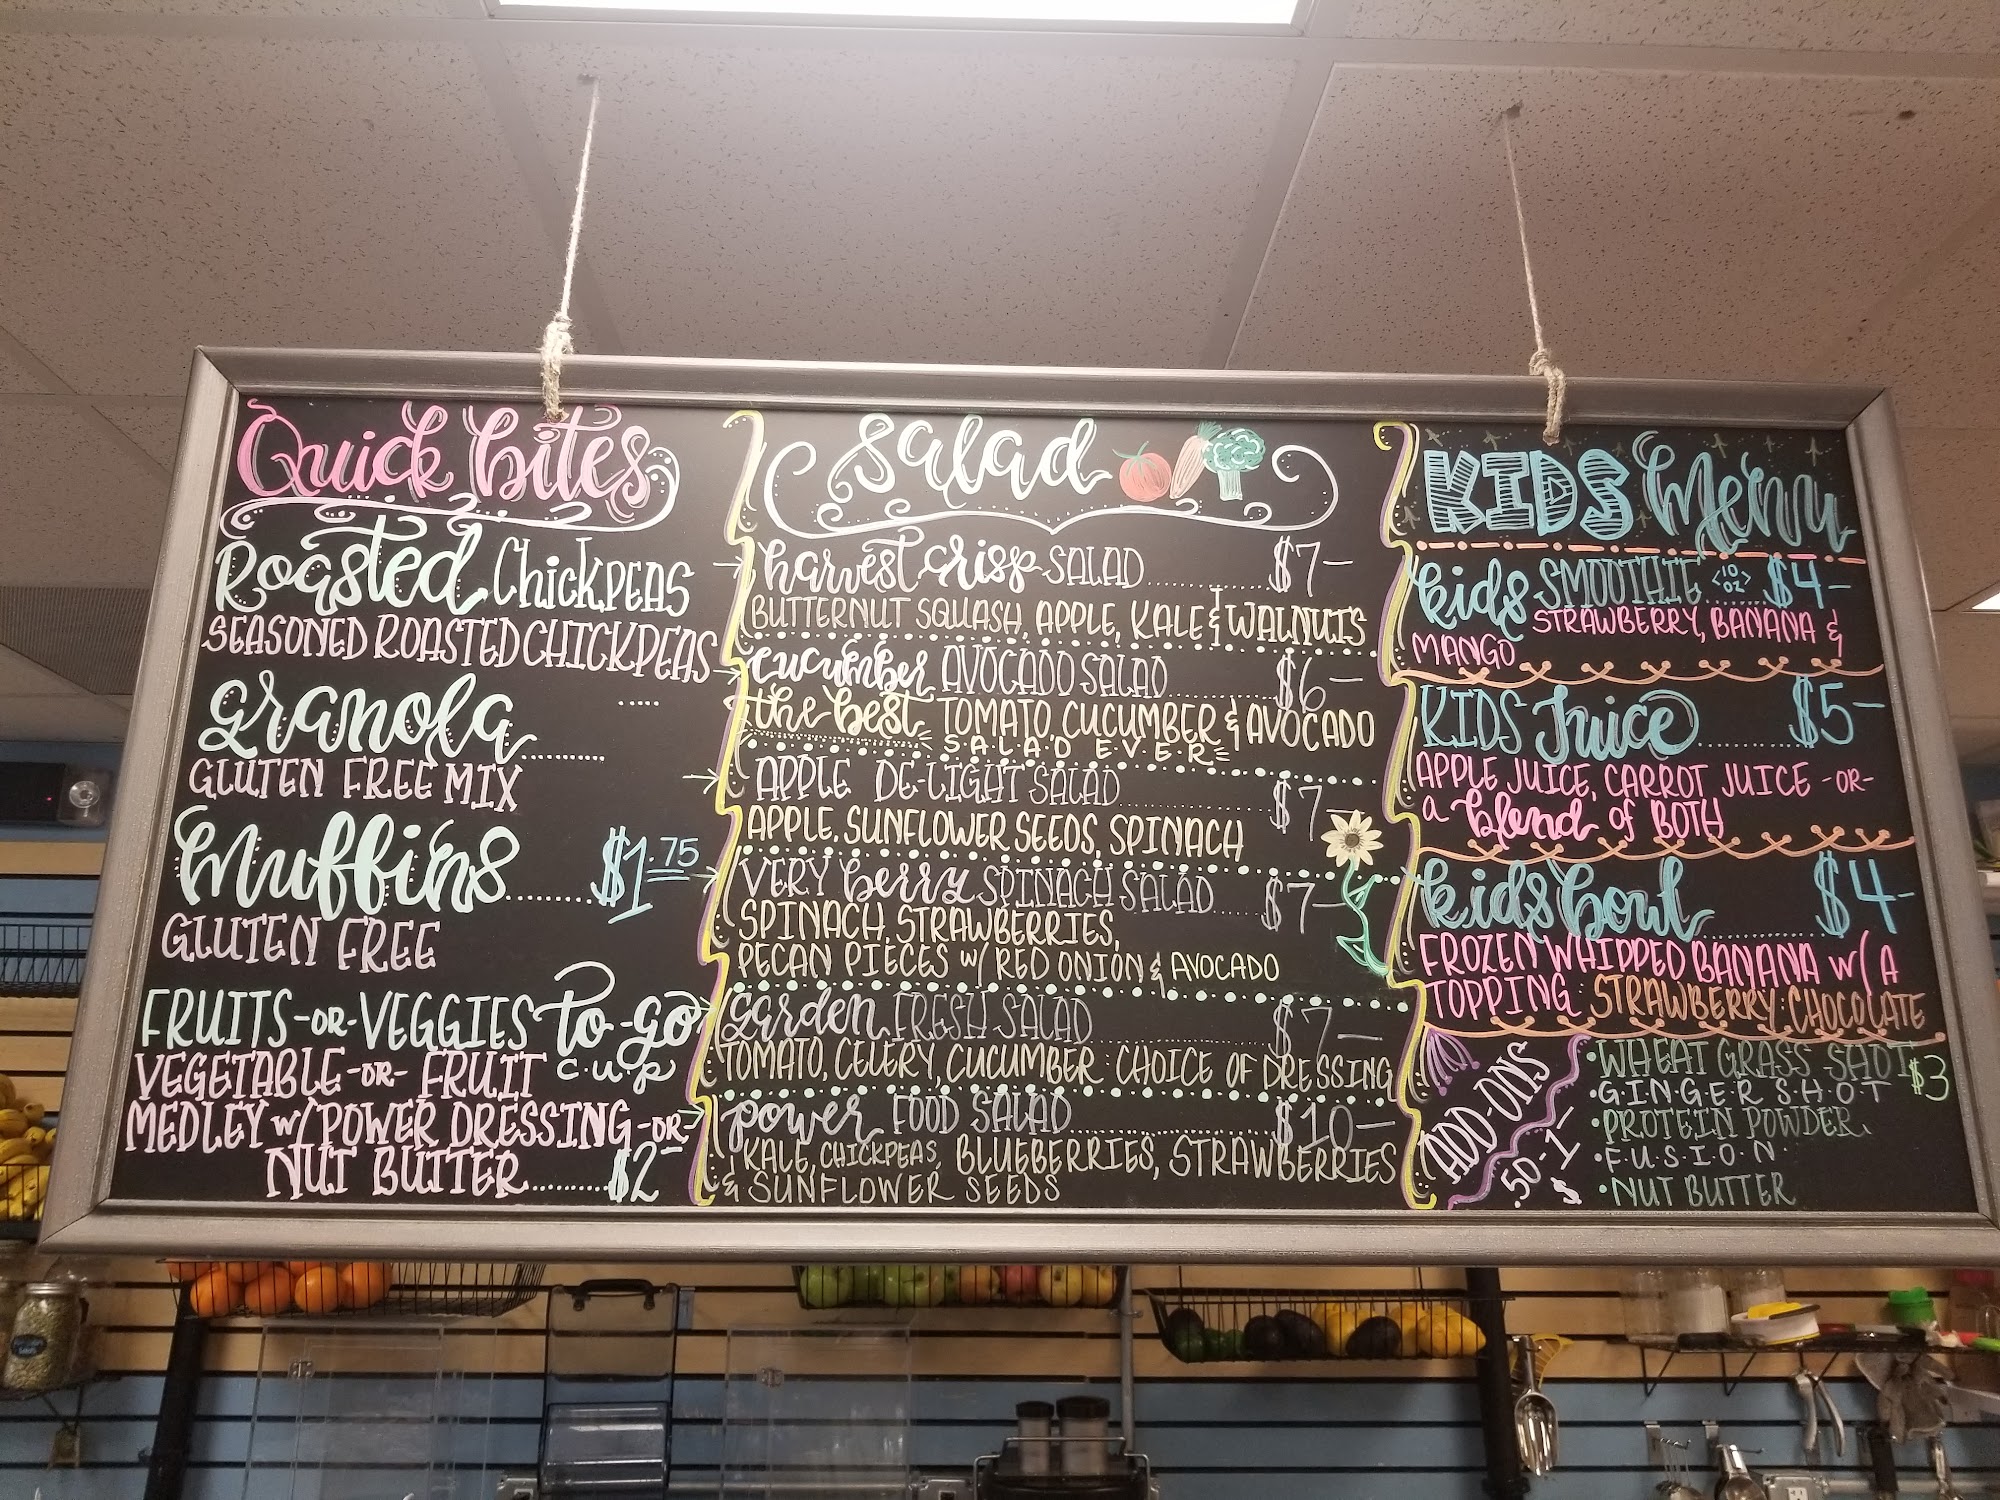 Quick bites
Roasted Chickpeas
SEASONED ROASTED CHICKPEAS
granola..........
GLUTEN FREE MIX
Muffins..........$1.75
GLUTEN FREE
FRUITS -OR- VEGGIES to-go
cup
VEGETABLE -OR- FRUIT
MEDLEY w/ POWER DRESSING -OR-
NUT BUTTER........$2-
Salad
harvest crisp SALAD........$7-
BUTTERNUT SQUASH, APPLE, KALE & WALNUTS
cucumber AVOCADO SALAD........$6-
the best TOMATO, CUCUMBER & AVOCADO
SALAD EVER
APPLE DE-LIGHT SALAD........$7-
APPLE, SUNFLOWER SEEDS, SPINACH
VERY berry SPINACH SALAD....$7-
SPINACH, STRAWBERRIES,
PECAN PIECES w/ RED ONION & AVOCADO
garden FRESH SALAD........$7-
TOMATO, CELERY, CUCUMBER : CHOICE OF DRESSING
power FOOD SALAD........$10-
KALE, CHICKPEAS, BLUEBERRIES, STRAWBERRIES
& SUNFLOWER SEEDS
KIDS Menu
kids SMOOTHIE <10 OZ> $4-
STRAWBERRY, BANANA &
MANGO
KIDS Juice........$5-
APPLE JUICE, CARROT JUICE -OR-
a blend of BOTH
kids bowl $4-
FROZEN WHIPPED BANANA w/ A
TOPPING : STRAWBERRY · CHOCOLATE
ADD-ONS
.50-1 $
•WHEAT GRASS SHOT
•GINGER SHOT $3
•PROTEIN POWDER
•FUSION
•NUT BUTTER